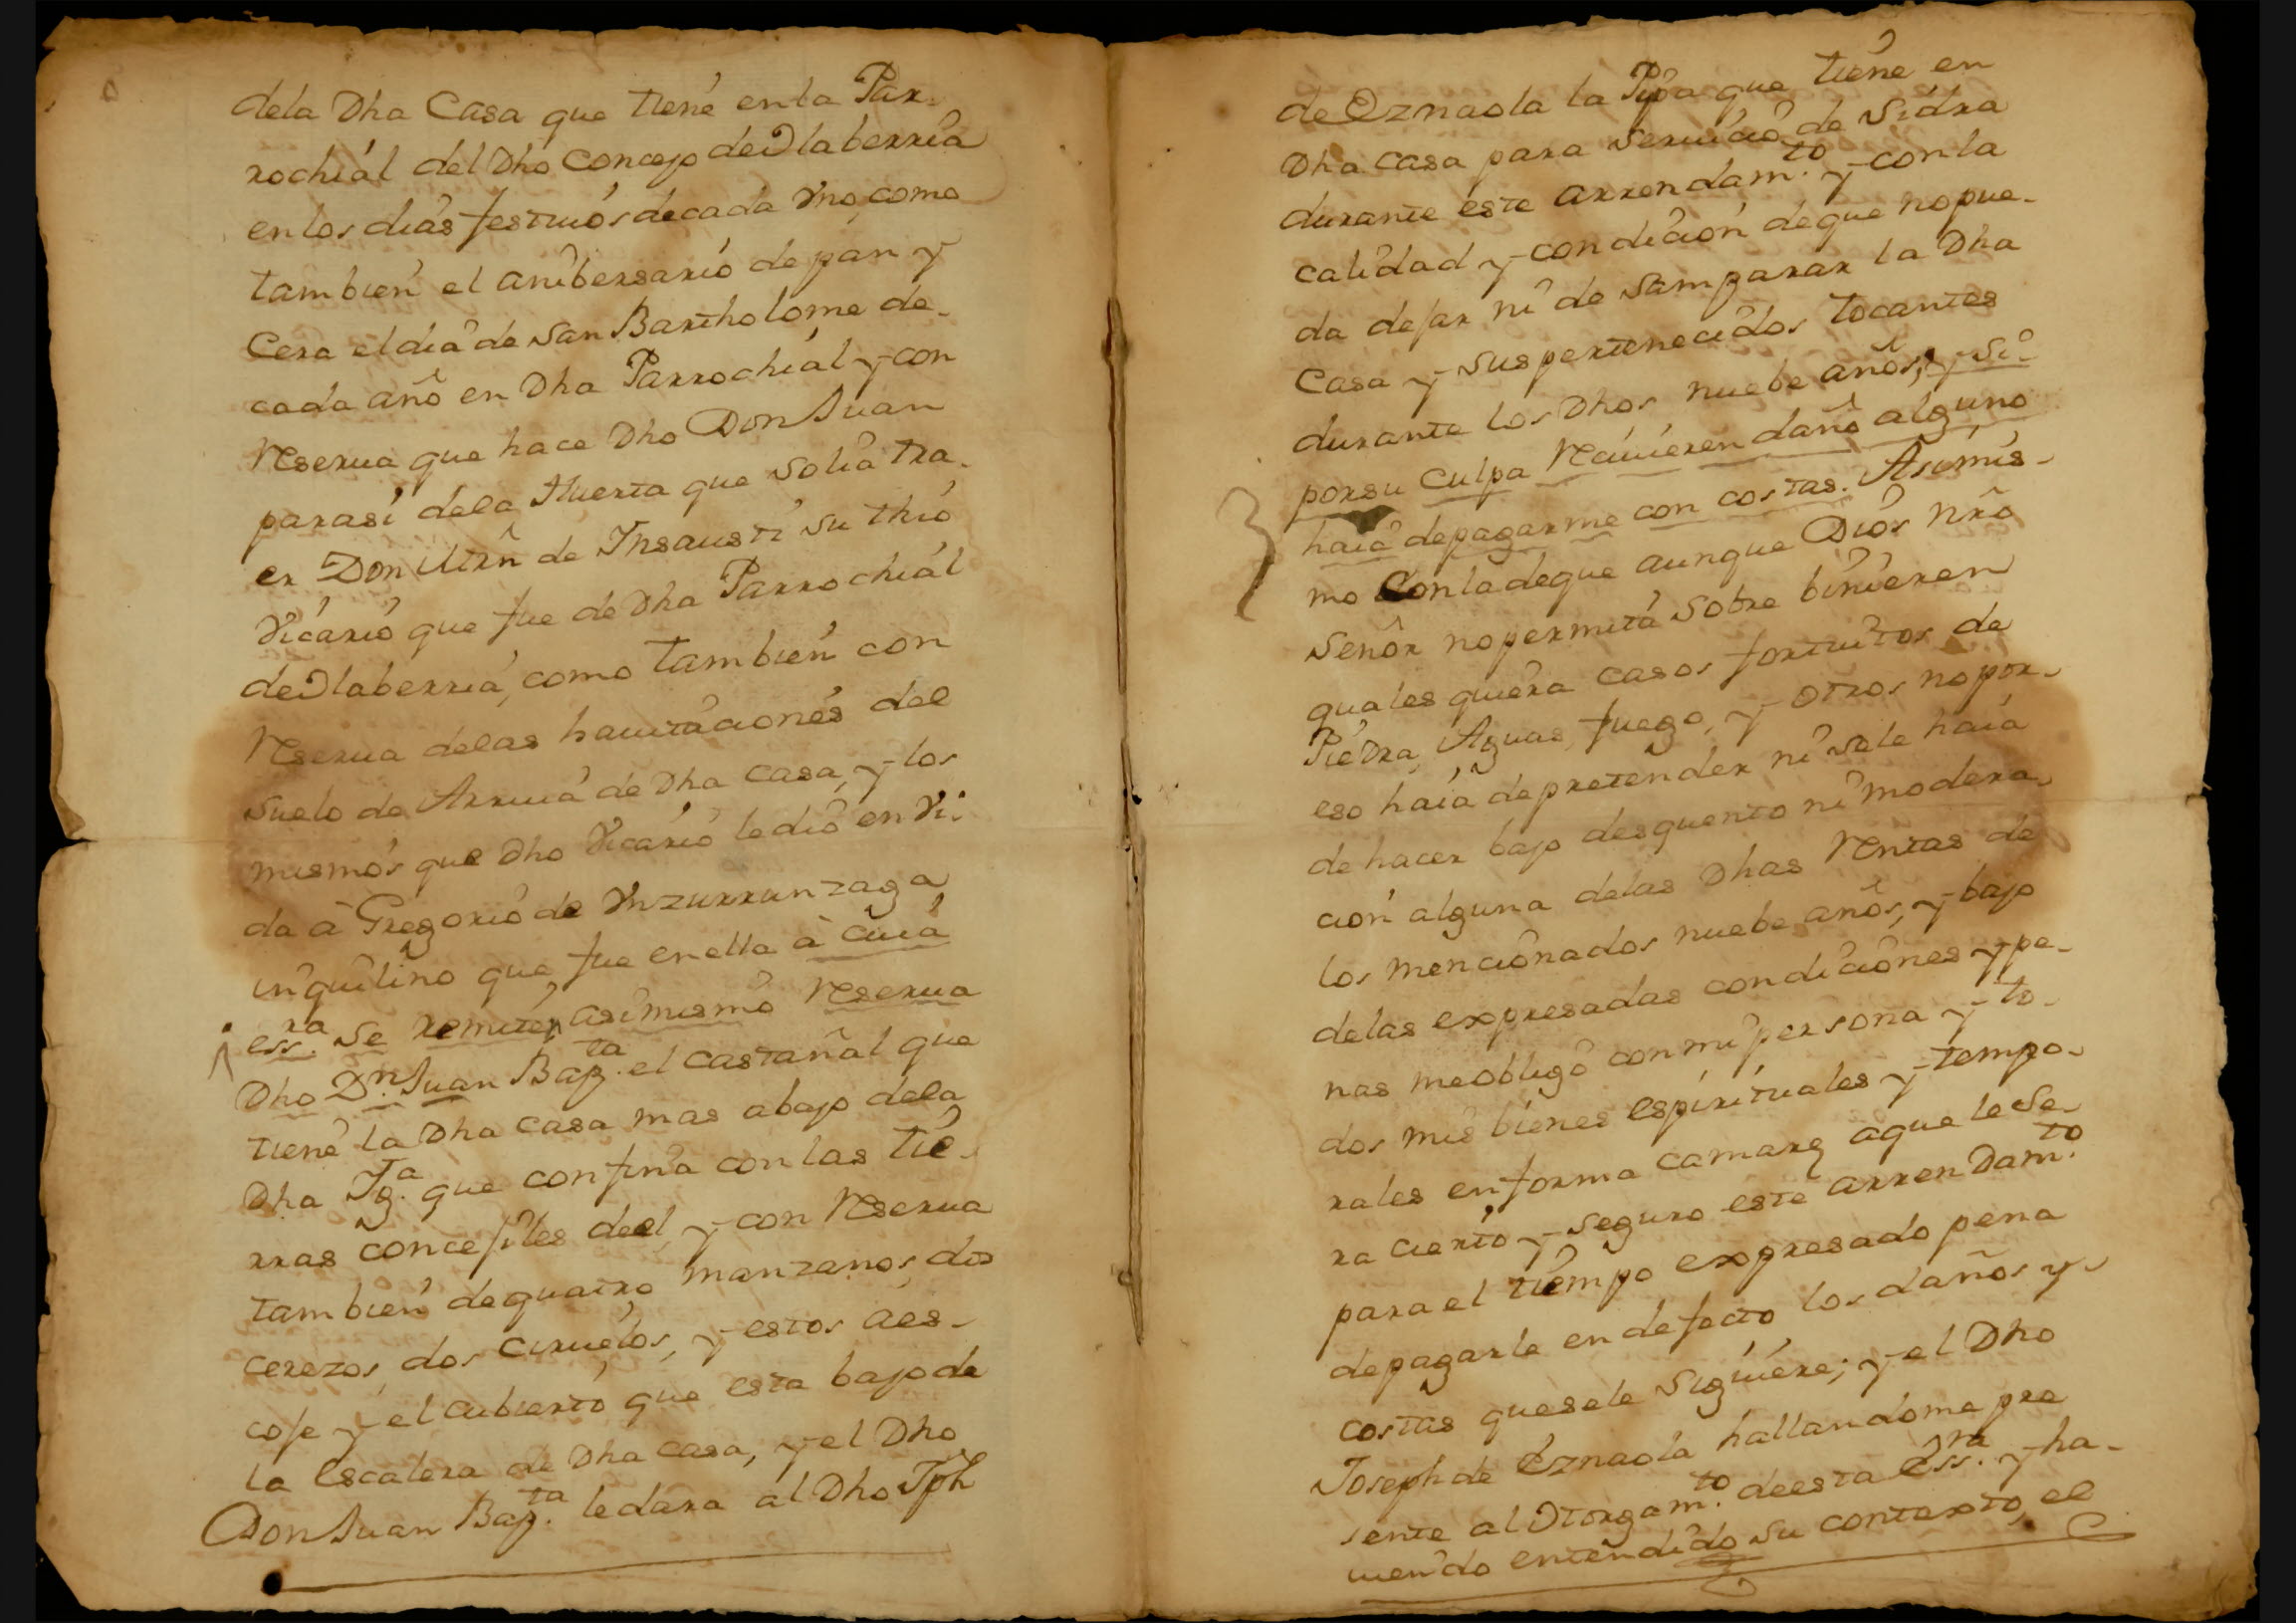 dela Dha Casa que tiene enla Par-
rochial del Dho Concejo de Olaberria
enlos dias festiuos de cada Vno, como
tambien el anibersario de pan y
Cera eldia de San Bartholome de-
cada año en Dha Parrochial y con
Reserua que hace Dho Don Juan
parasi dela Huerta que solia tra-
er Don Mrñ de Insausti su thio
Vicario que fue de Dha Parrochial
de Olaberria, como tambien con
Reserua delas hauitaciones del
suelo de Arriua de Dha Casa, y los
mismos que Dho Vicario ledio en Vi-
da â Gregorio de Ynzurrunzaga
inquilino que fue en ella à cuia
essra. se remiten, asimismo Reserua
Dho Dn. Juan Bapta. el castañal que
tiene la Dha casa mas abajo dela
Dha Iga. que confina con las tie-
rras concejiles deel, y con Reserua
tambien de quatro manzanos, dos
cerezos, dos ciruelos, y estos aes-
coje y el cubierto que esta bajo de
la Escalera de Dha casa, y el Dho
Don Juan Bapta. ledara al Dho Jph
de Eznaola la Pipa que tiene en
Dha. casa para seruicio de Sidra
durante este arrendamto. y con la
calidad y condicion deque nopue-
da dejar ni de samparar la Dha
Casa y sus pertenecidos tocantes
durante los Dhos nuebe años, y si
porsu culpa Reciuieren daño alguno
haia depagarme con costas. Asimis-
mo Conladeque aunque Dios nrô
Señor nopermita sobre binieren
quales quiera casos fortuitos de
Piedra, Aguas, fuego, y otros nopor-
eso haia depretender ni sele haia
de hacer bajo desquento ni modera-
cion alguna delas Dhas Rentas de
los mencionados nuebe años, y bajo
delas expresadas condiciones y pe-
nas meobligo conmi persona y to-
dos mis bienes espirituales y tempo-
rales enforma aque lese-
ra cierto y seguro este arrendamto.
para el tiempo expresado pena
depagarle en defecto los daños y
costas quesele siguiere; y el Dho
Joseph de Eznaola hallandome pre
sente al Otorgamto. deesta Essra. y ha-
uiendo entendido su contexto, el